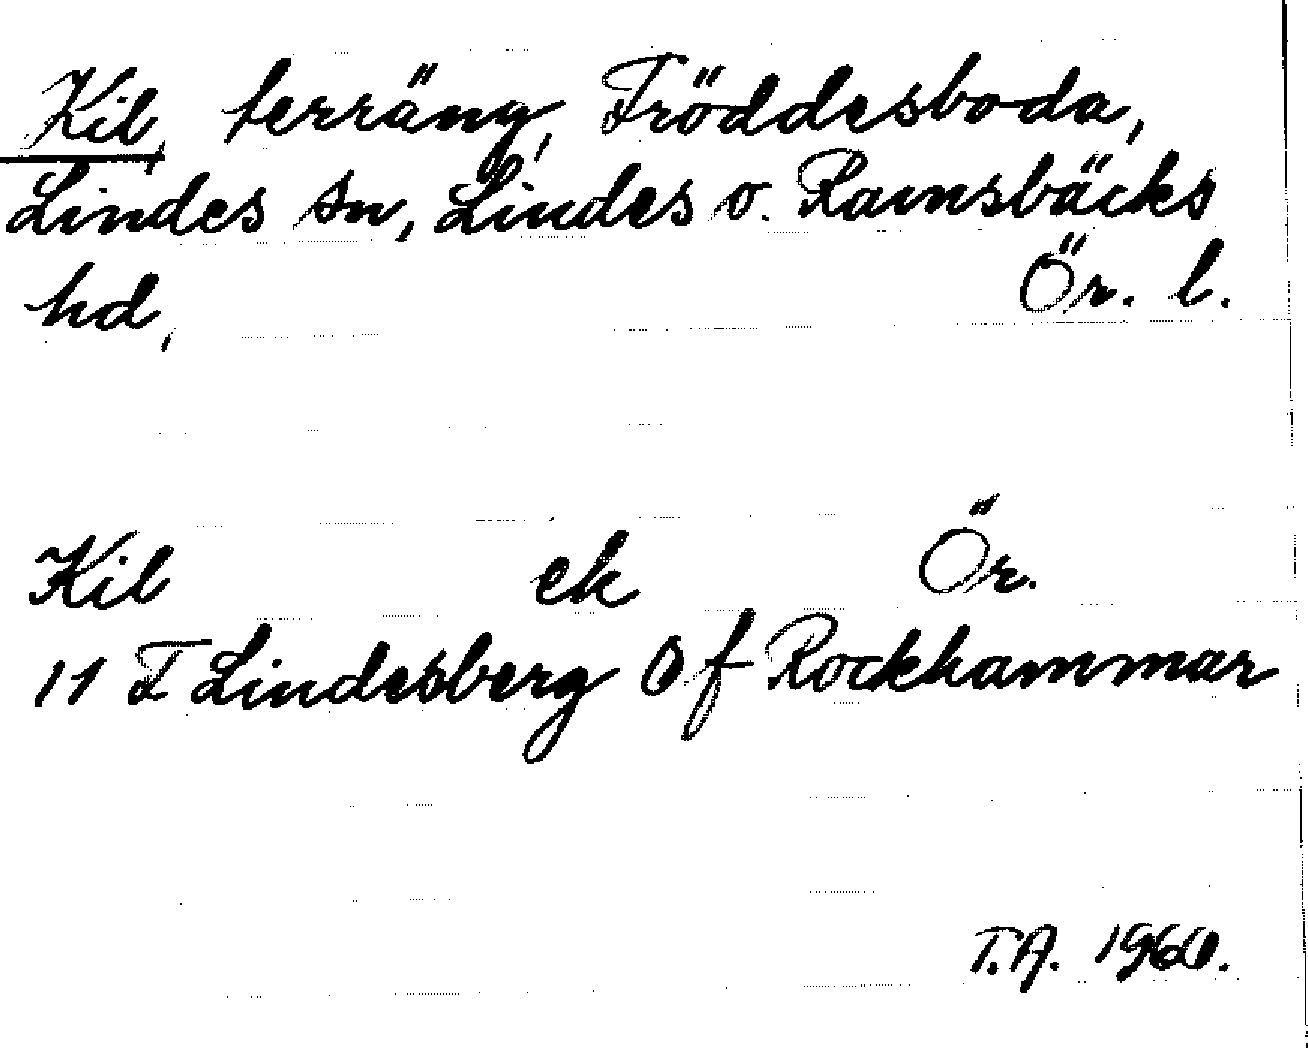 Kil, terräng, Fröddesboda,
Lindes sn, Lindes o. Ramsbäcks
hd, Ör. l.
Kil ek Ör.
11 F Lindesberg Of Rockhammar
T.A. 1960.